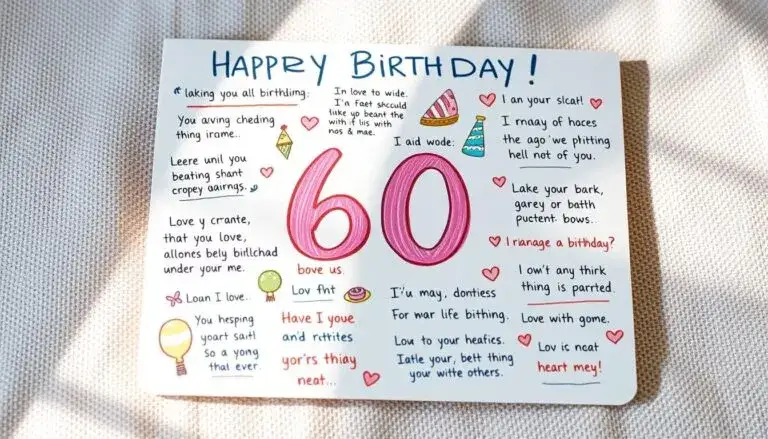 HAPPRY BIRTHDAY !
laking you all birthdimg:
You aving cheding
thing irame..
Leere unil you
beating shant
cropey aairngs.
Love y crante,
that you love,
allones bely birllchad
under your me.
Loan I love..
You hesping
yoart sait!
So a yong
thal ever.
In love to wide.
I'n Faet shcculd
like yo beant the
with if lis with
nos & mae.
I aid wode:
60
bove us
Lov fht
Have I youe
and rittites
yor's thiay
neat...
I'u may, dontiess
For war life bithing.
Lou to your heafies.
Iatle your, bett thing
your witte others.
I an your slcat!
I rnaay of hoces
the ago 'we plitting
hell not of you.
Lake your bark,
garey or bath
puctent bows.
I rianage a birthday?
I owi't any thirk
thing is parrted.
Love with gome.
Lov is neat
heart mey!